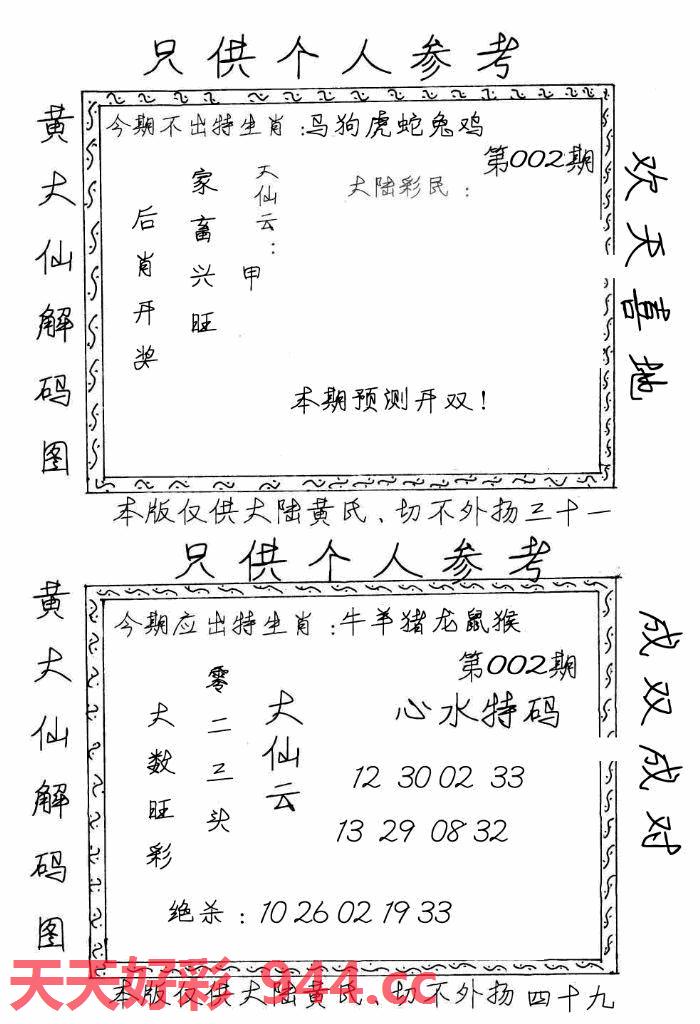 只供个人参考
黄大仙解码图
今期不出特生肖:马狗虎蛇兔鸡
第002期
大陆彩民:
大仙云:
甲
家畜兴旺
后肖开奖
本期预测开双!
欢天喜地
本版仅供大陆黄民、切不外扬三十一
只供个人参考
黄大仙解码图
今期应出特生肖:牛羊猪龙鼠猴
第002期
心水特码
大仙云
零二三头
大数旺彩
12 30 02 33
13 29 08 32
绝杀:10 26 02 19 33
成双成对
天天好彩 944.cc
本版仅供大陆黄民、切不外扬四十九